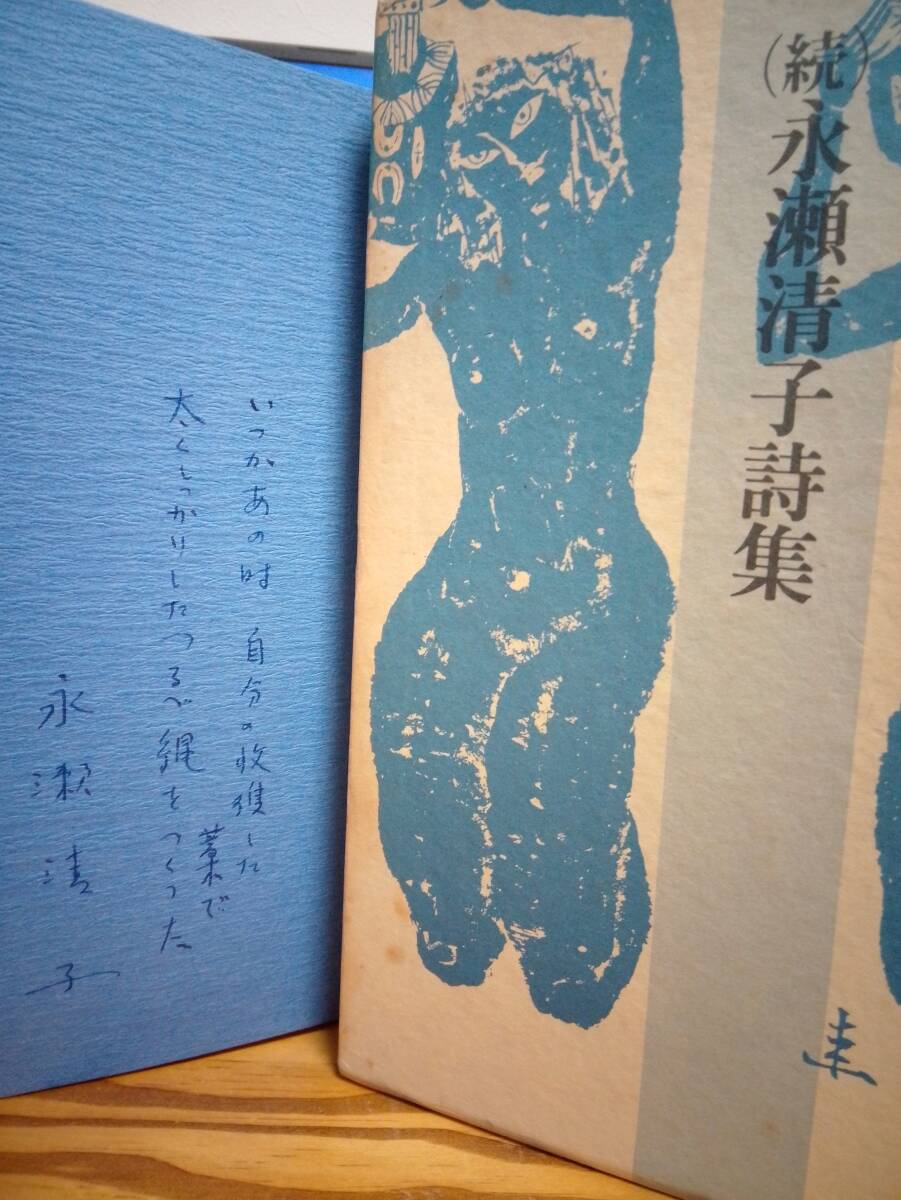 (続)永瀬清子詩集
圭
いつかあの時 自分の収獲した
藁で
太くしっかりしたつるべ縄をつくった
永瀬清子